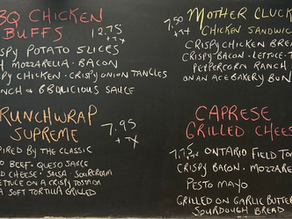 BBQ CHICKEN
BUFFS 12.75
+TX
CRISPY POTATO SLICES
MOZZARELLA · BACON
CRISPY CHICKEN · CRISPY ONION TANGLES
RANCH & BBQLICIOUS SAUCE
MOTHER CLUCK
7.50 CHICKEN SANDWIC
+TX
CRISPY CHICKEN BREA
CRISPY BACON · LETTUCE · T
PEPPERCORN RANCH
ON AN ACE BAKERY BUN
CRUNCHWRAP
SUPREME 7.95
+TX
INSPIRED BY THE CLASSIC
BEEF · QUESO SAUCE
CHEESE · SALSA · SOUR CREAM
LETTUCE ON A CRISPY TOSTADA
A SOFT TORTILLA GRILLED
CAPRESE
GRILLED CHEES
+TX ONTARIO FIELD TOM
CRISPY BACON · MOZZARE
PESTO MAYO
GRILLED ON GARLIC BUTTER
SOURDOUGH BREAD